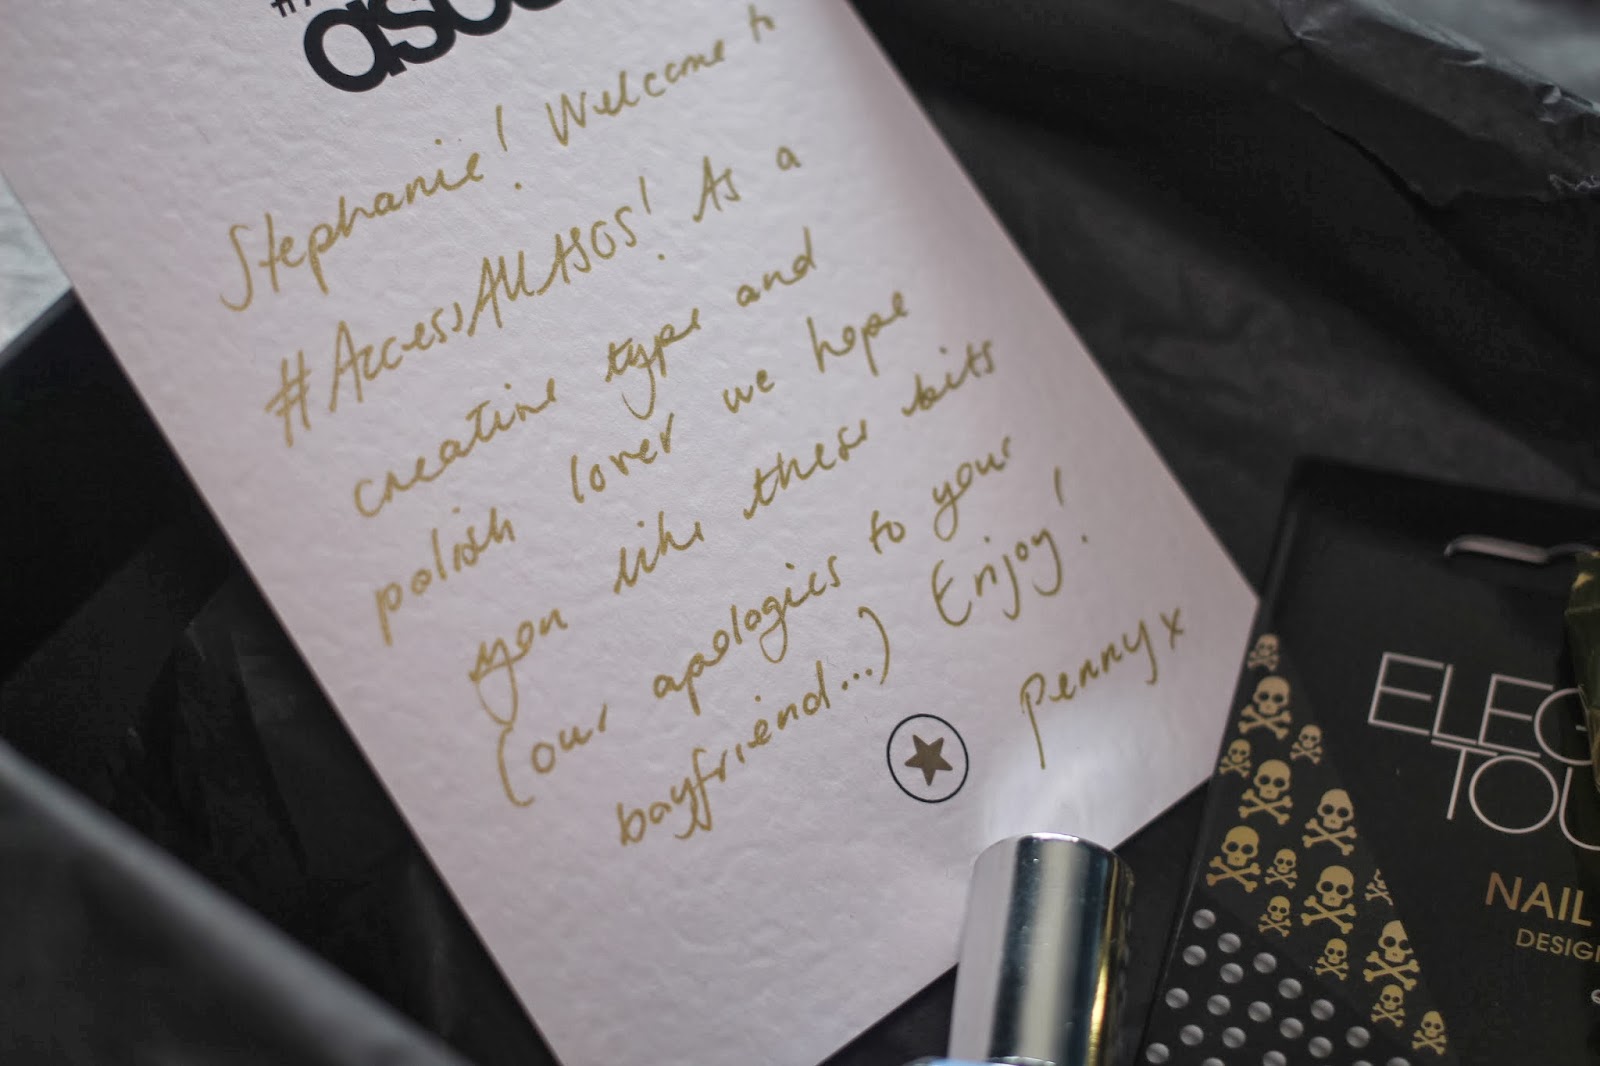 Stephanie! Welcome to
#AccessAllASOS! As a
creative type and
polish lover we hope
you like these bits
(our apologies to your
boyfriend...) Enjoy!
Penny x
NAIL